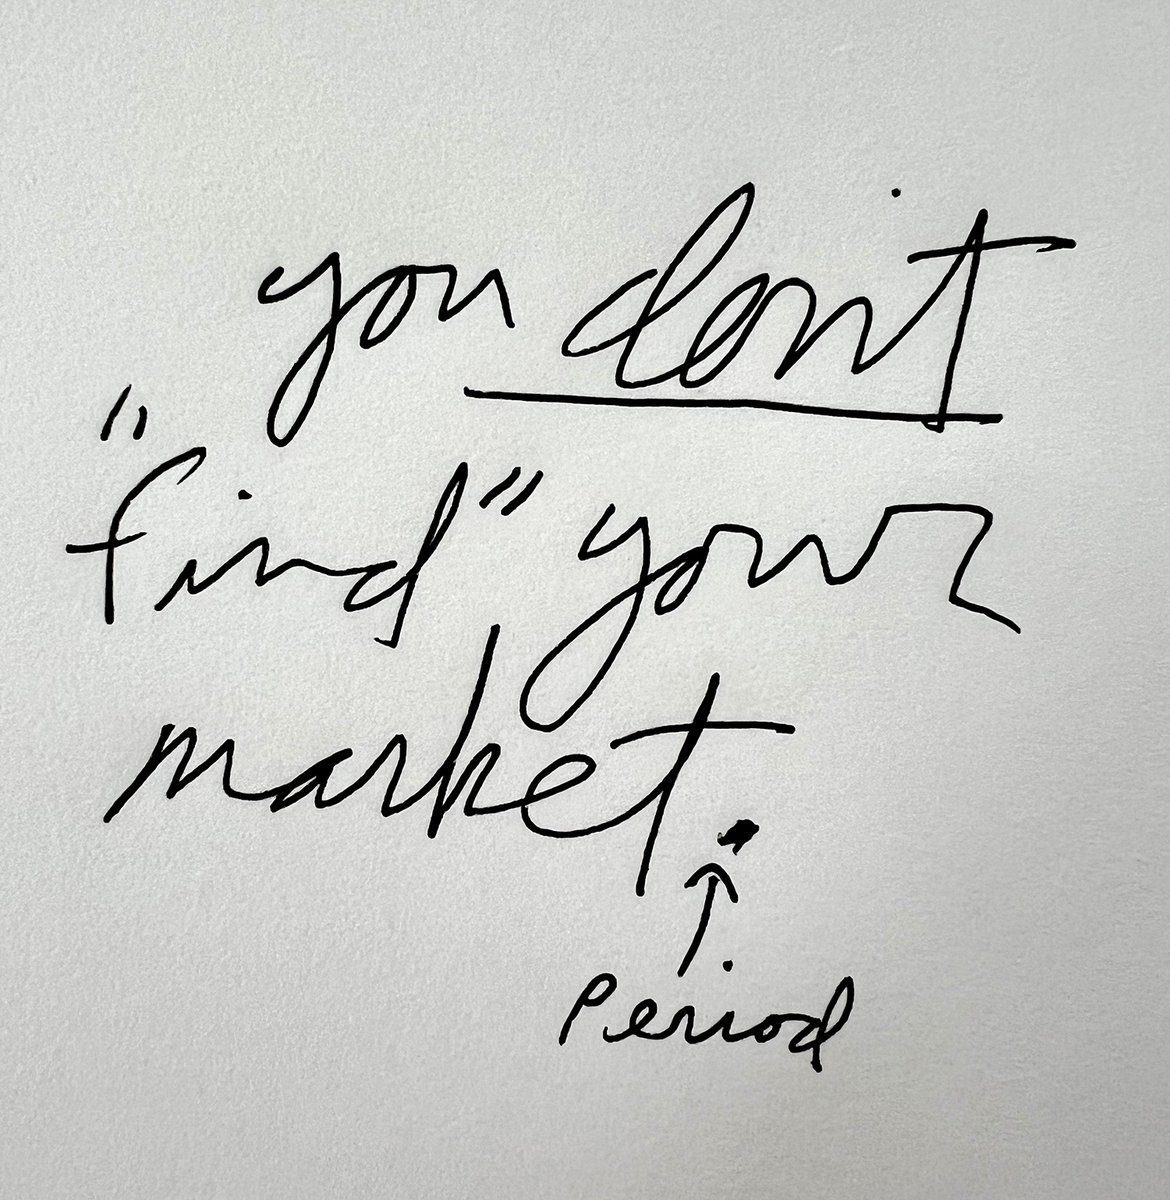 you don't
"find" your
market.
↑
Period